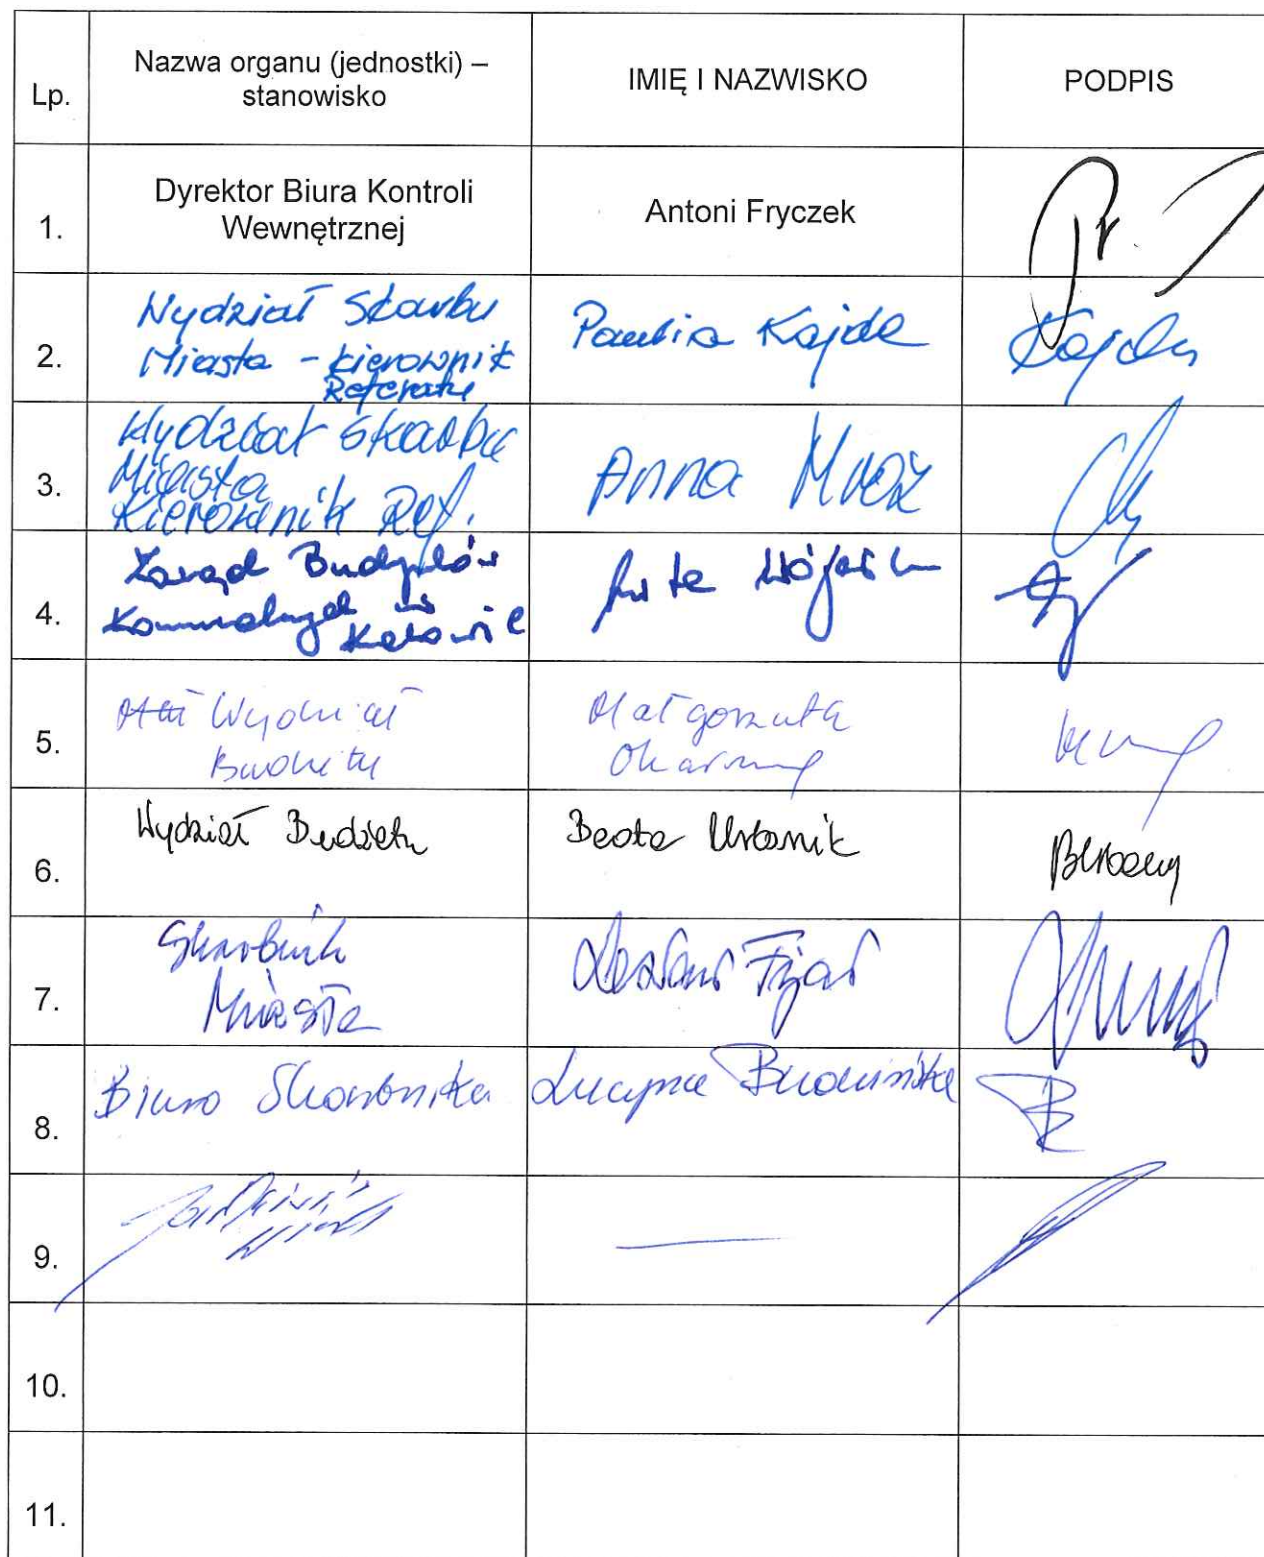 Lp.
Nazwa organu (jednostki) –
stanowisko
IMIĘ I NAZWISKO
PODPIS
1.
Dyrektor Biura Kontroli
Wewnętrznej
Antoni Fryczek
2.
Wydział Skarbu
Miasta - kierownik
Referatu
Paulina Kajda
Kajda
3.
Wydział Skarbu
Miasta
Kierownik Ref.
Anna Mróz
4.
Zarząd Budynków
Komunalnych w
Katowic
5.
Wydział
Budżetu
Małgorzata
6.
Wydział Budżetu
Beata Urbanik
7.
Skarbnik
Miasta
8.
Biuro Skarbnika
Lucyna Budzińska
9.
10.
11.